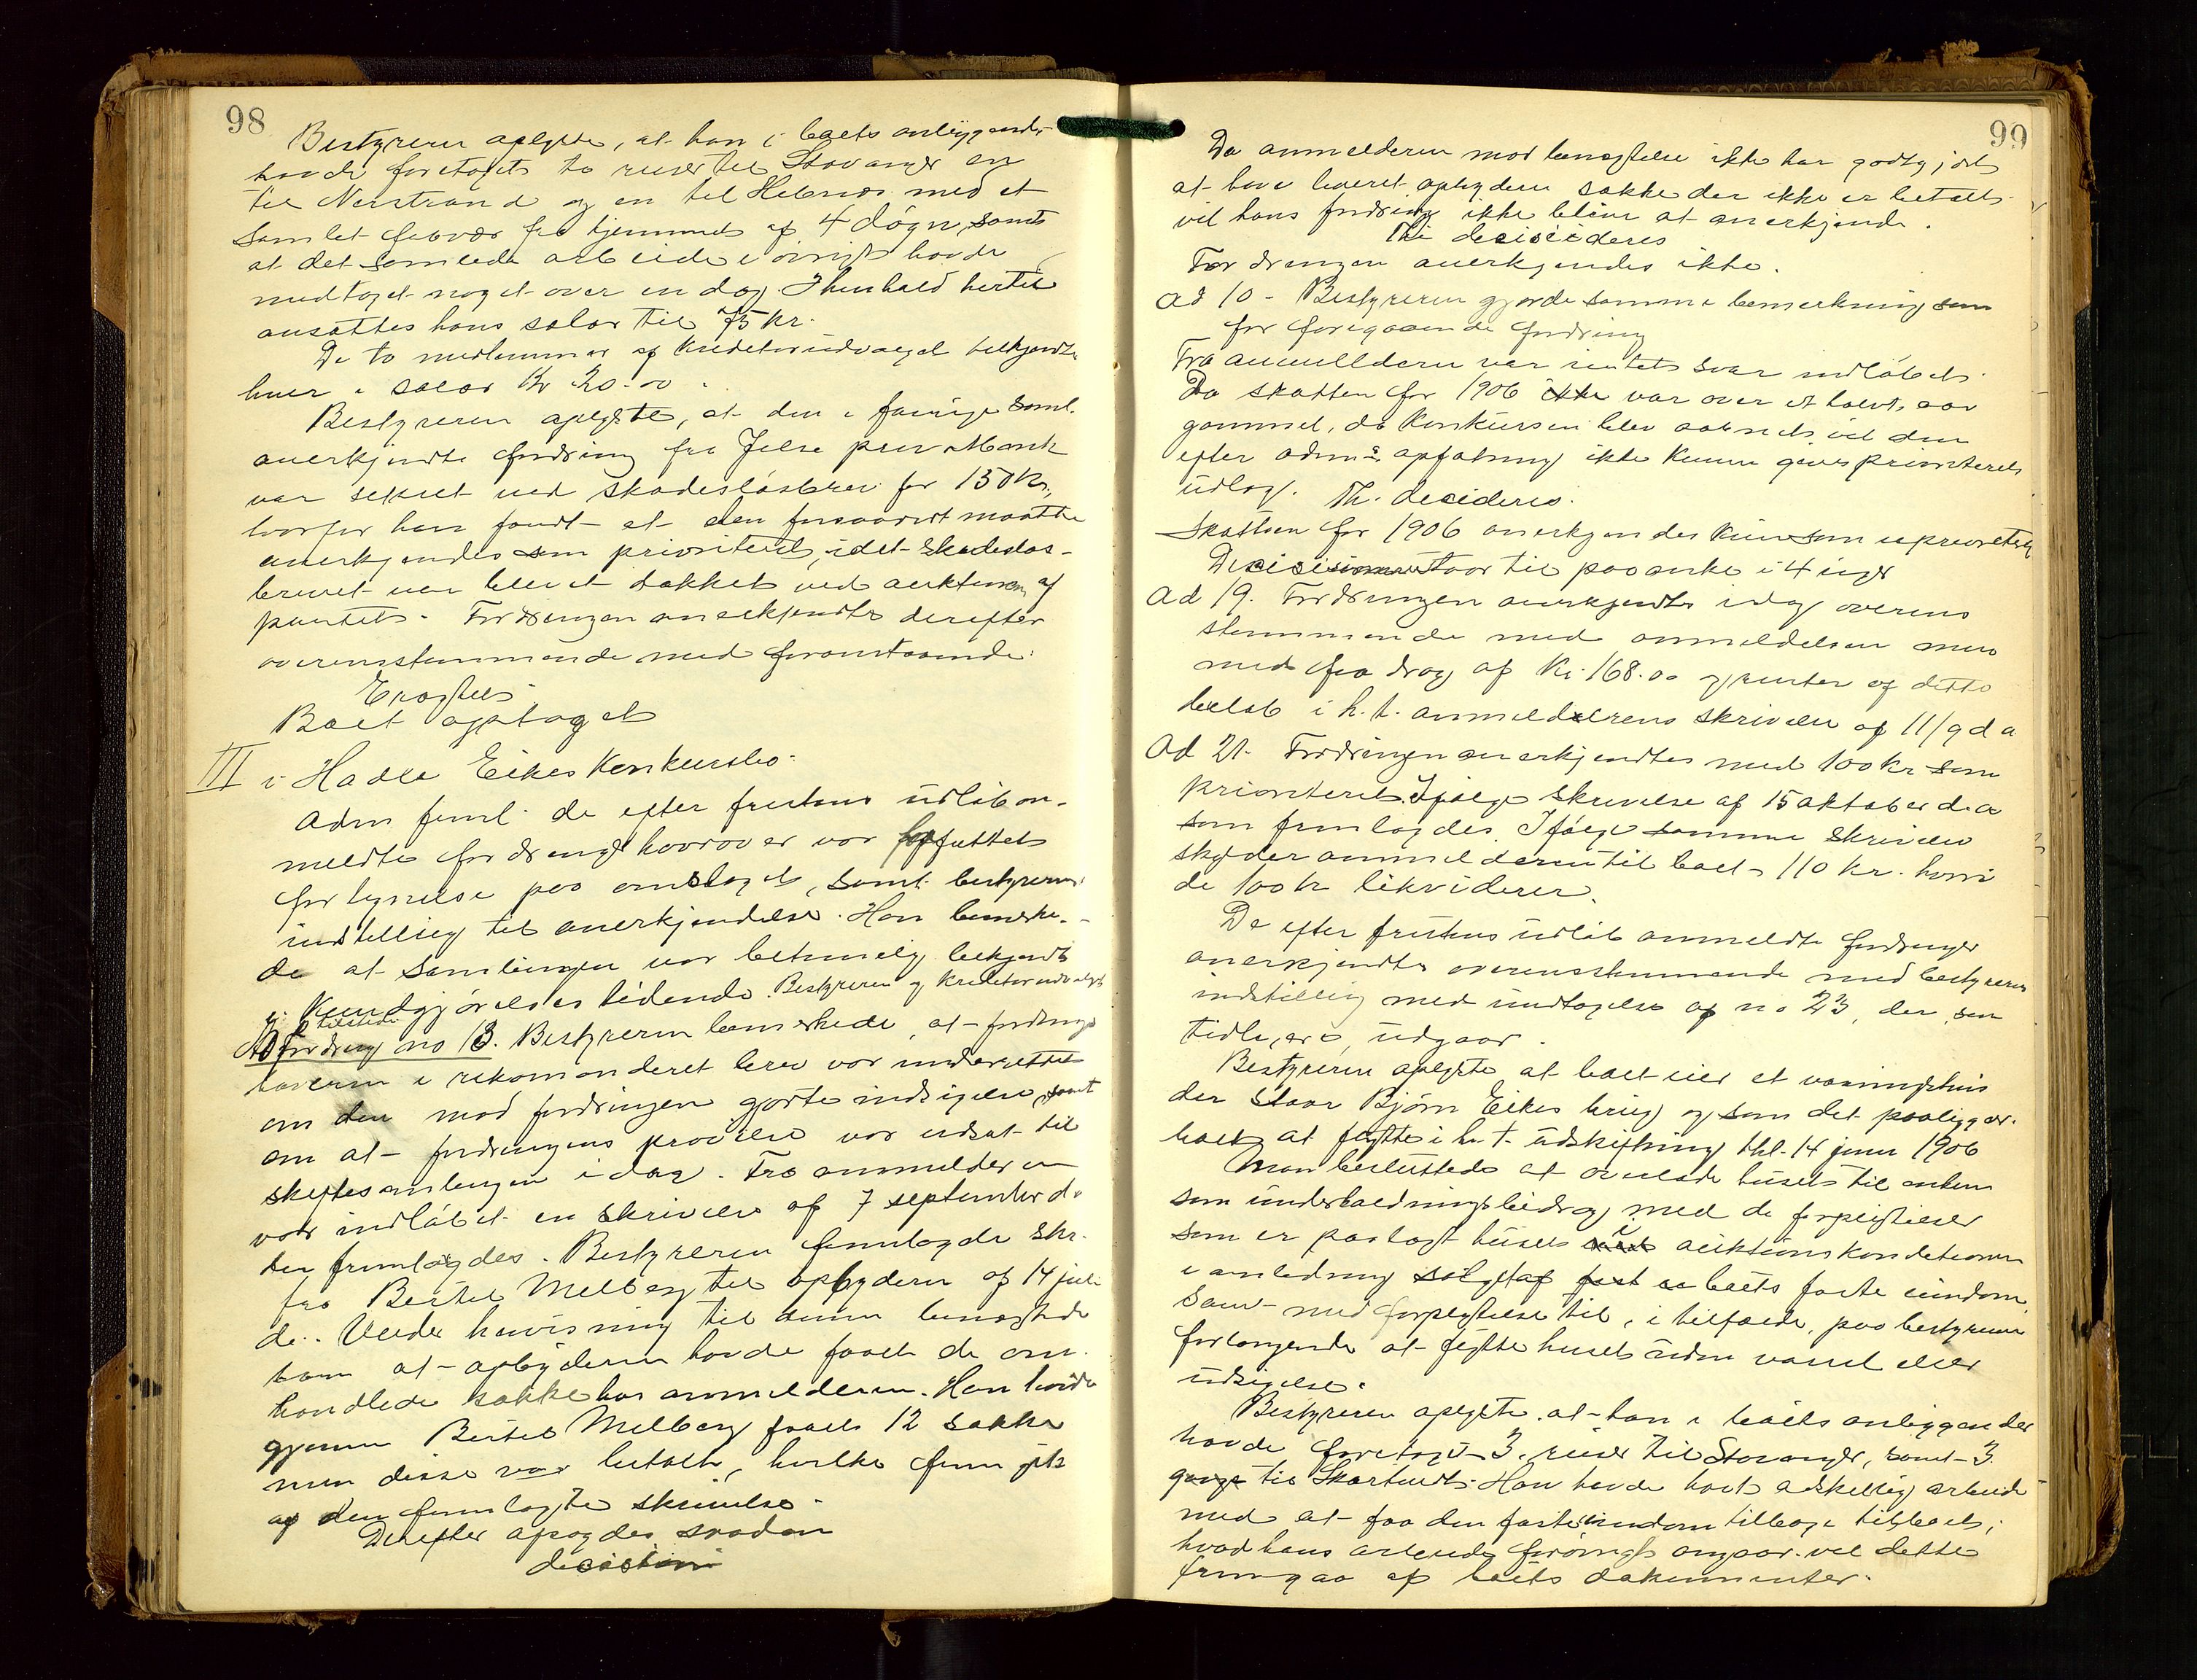 98
Bestyreren oplyste, at han i boets anliggender
havde foretaget to reiser til Stavanger en
til Nerstrand og en til Hebnes med et
samlet fravær fra hjemmet af 4 døgn, samt
at det samlede arbeide i øvrigt havde
medtaget noget over en dag. I henhold hertil
ansattes hans salær til 75 kr.
De to medlemmer af kreditorudvalget tilkjendtes
hver i salær Kr 20.00.
Bestyreren oplyste, at den i forrige saml.
anerkjendte fordring fra Jelse prv. Mark
var sikret ved skadesløsbrev for 150 Kr.,
hvorfor han fandt at den forsaavidt maatte
anerkjendes som prioriteret, idet skadesløs-
brevet var blevet dækket ved auktionen af
pantet. Fordringen anerkjendtes derefter
overensstemmende med foranstaaende.
Eragtet
Boet optaget
III i Hadle Eikes Konkursbo.
Adm freml. de efter fristens udløb an-
meldte fordringer hvorover var forfattet
fortegnelse paa omslaget, samt bestyrerens
indstilling til anerkjendelse. Han bemerke-
de at samlingen var betimelig bekjendt
i Kundgjørelsestidende. Bestyreren og kreditorudvalget
tilstede
Ad fordring no 13. Bestyreren bemerkede, at fordrings
haveren i rekomanderet brev var underrettet
om den mod fordringen gjorte indsigelse, samt
om at fordringens prøvelse var udsat til
skiftesamlingen idag. Fra anmelderen
var indløbet en skrivelse af 7 september d.
der fremlagdes. Bestyreren fremlagde skr.
fra Bertel Melberg til opbyderen af 14 juli
d.. Under henvisning til denne benegtede
han at opbyderen havde faaet de om-
handlede sække hos anmelderen. Han havde
gjennem Bertel Melberg faaet 12 sække
men disse var betalt, hvilke fremgik
af den fremlagte skrivelse.
Derefter afsagdes saadan
decision
99
Da anmelderen mod benegtelse ikke har godtgjort
at have leveret opbyderen sække der ikke er betalt
vil hans fordring ikke blive at anerkjende.
Thi decideres
Fordringen anerkjendes ikke.
Ad 10 - Bestyreren gjorde samme bemerkning som
for foregaaende fordring
Fra anmelderen var intet svar indløbet.
Da skatten for 1906 ikke var over et halvt aar
gammel, da konkursen blev aabnet, vil den
efter adms opfatning ikke kunne gives prioriteret
udlæg. Thi decideres.
Skatten for 1906 anerkjendes kun som uprioriteret
Decisionen staar til paaanke i 4 uger
Ad 19. Fordringen anerkjendtes idag overens
stemmende med anmeldelsen men
med fradrag af Kr. 168.00 og renter af ditto
beløb i h. t. anmelderens skrivelse af 11/9 d a
Ad 21. Fordringen anerkjendtes med 100 kr som
prioriteret. Ifølge skrivelse af 15 oktober d. a
som fremlagdes. Ifølge samme skrivelse
skylder anmelderen til boet 110 kr. hvori
de 100 kr likviderer.
De efter fristens udløb anmeldte fordringer
anerkjendtes overensstemmende med bestyrerens
indstilling med undtagelse af no 23, der, som
tidligere, udgaar.
Bestyreren oplyste at boet eier et vaaningshus
der staar Bjørn Eikes brug og som det paaligger
boet at flytte i h. t. udskiftning thl. 14 juni 1906
Man besluttede at overlade huset til enken
som underholdningsbidrag med de forpligtelser
som er paalagt huset i auktionskonditionerne
i anledning salget af boets faste eiendom,
samt med forpligtelse til, i tilfælde, paa bestyrerens
forlangende at flytte huset uden varsel eller
udsigelse.
Bestyreren oplyste at han i boets anliggender
havde foretaget 3 reiser til Stavanger, samt 3
gange til Skartveit. Han havde havt adskillig arbeide
med at faa den faste eiendom tilbage til boet,
hvad hans arbeide forøvrigt angaar vil dette
fremgaa af boets dokumenter.